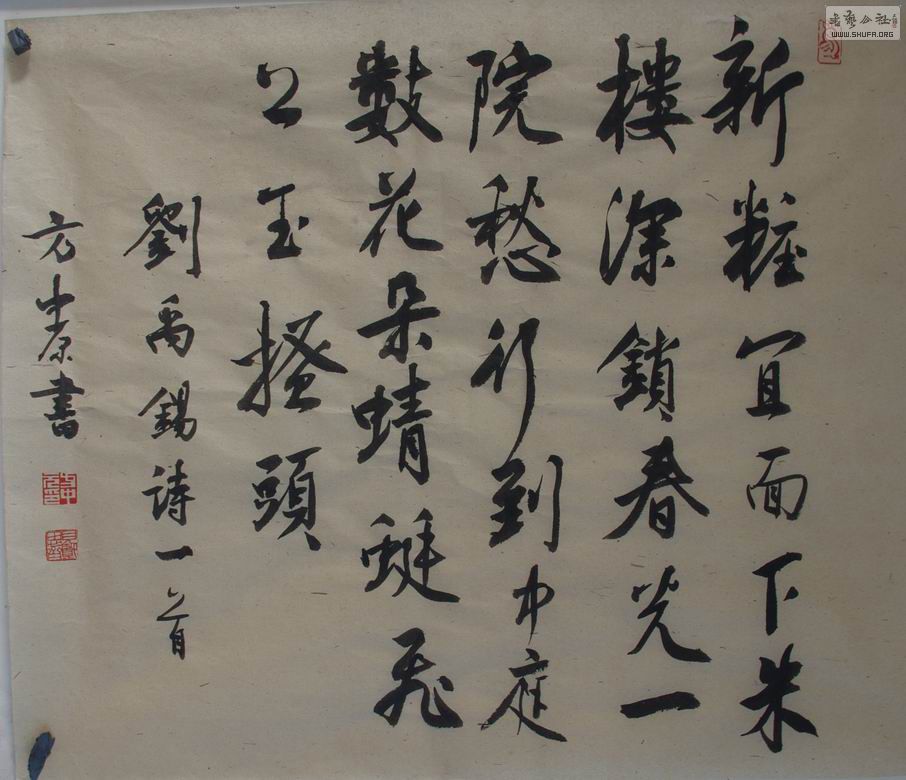 新粧宜面下朱
樓深鎖春光一
院愁行到中庭
數花朵蜻蜓飛
上玉搔頭
劉禹錫詩一首
方中原書
WWW.SHUFA.ORG